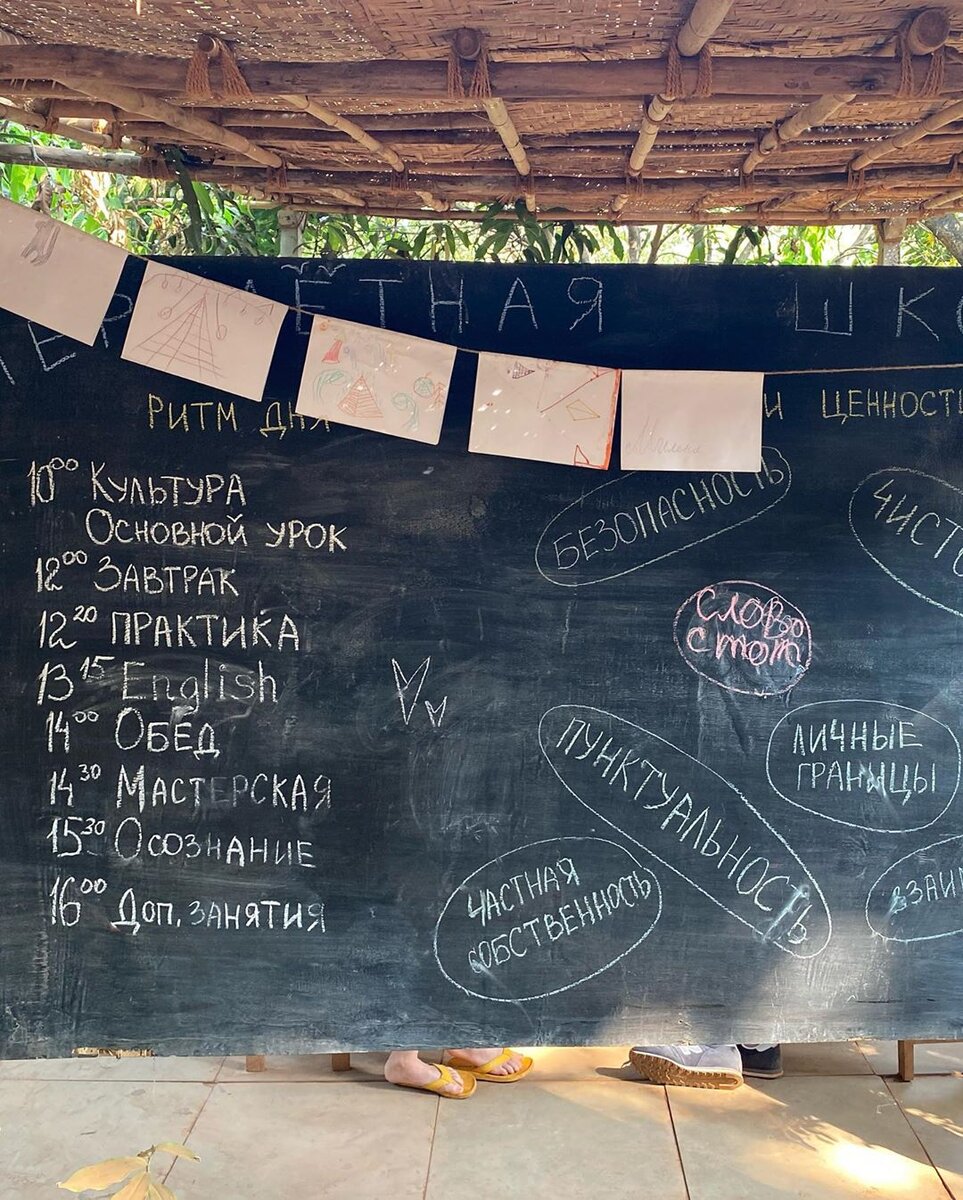 ЛЁТНАЯ ШКО
РИТМ ДНЯ
И ЦЕННОСТ
10⁰⁰ КУЛЬТУРА
ОСНОВНОЙ УРОК
12⁰⁰ ЗАВТРАК
12²⁰ ПРАКТИКА
13¹⁵ English
14⁰⁰ ОБЕД
14³⁰ МАСТЕРСКАЯ
15³⁰ ОСОЗНАНИЕ
16⁰⁰ ДОП. ЗАНЯТИЯ
БЕЗОПАСНОСТЬ
ЧИСТО
СЛОВО
стоп
ЛИЧНЫЕ
ГРАНИЦЫ
ПУНКТУАЛЬНОСТЬ
ЧАСТНАЯ
СОБСТВЕННОСТЬ
ВЗАИ